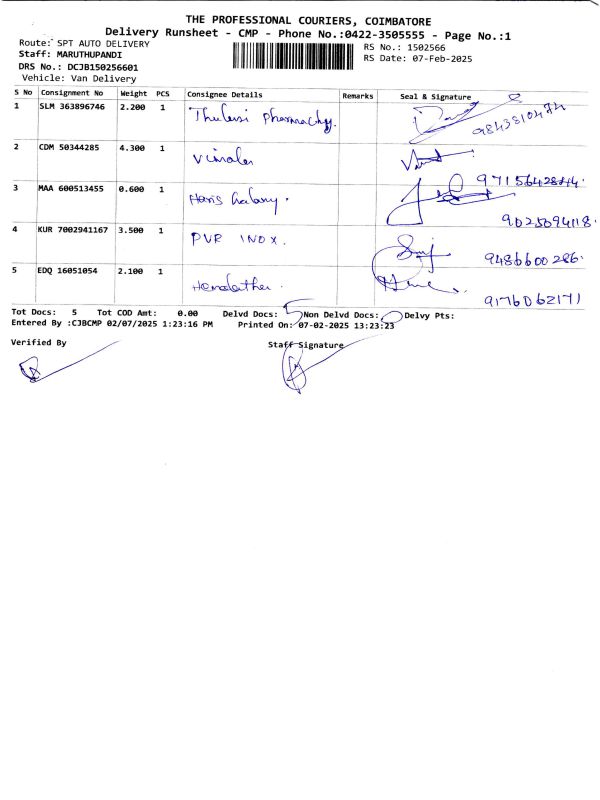 THE PROFESSIONAL COURIERS, COIMBATORE
Delivery Runsheet - CMP - Phone No.:0422-3505555 - Page No.:1
Route: SPT AUTO DELIVERY RS No.: 1502566
Staff: MARUTHUPANDI RS Date: 07-Feb-2025
DRS No.: DCJB150256601
Vehicle: Van Delivery
S No Consignment No Weight PCS Consignee Details Remarks Seal & Signature
1 SLM 363896746 2.200 1 9843810474
2 CDM 50344285 4.300 1 Vimala
3 MAA 600513455 0.600 1 Haris 9025094118.
4 KUR 7002941167 3.500 1 PVR INOX. 9486600286.
5 EDQ 16051054 2.100 1 9176062171
Tot Docs: 5 Tot COD Amt: 0.00 Delvd Docs: 5 Non Delvd Docs: 0 Delvy Pts:
Entered By :CJBCMP 02/07/2025 1:23:16 PM Printed On: 07-02-2025 13:23:23
Verified By Staff Signature